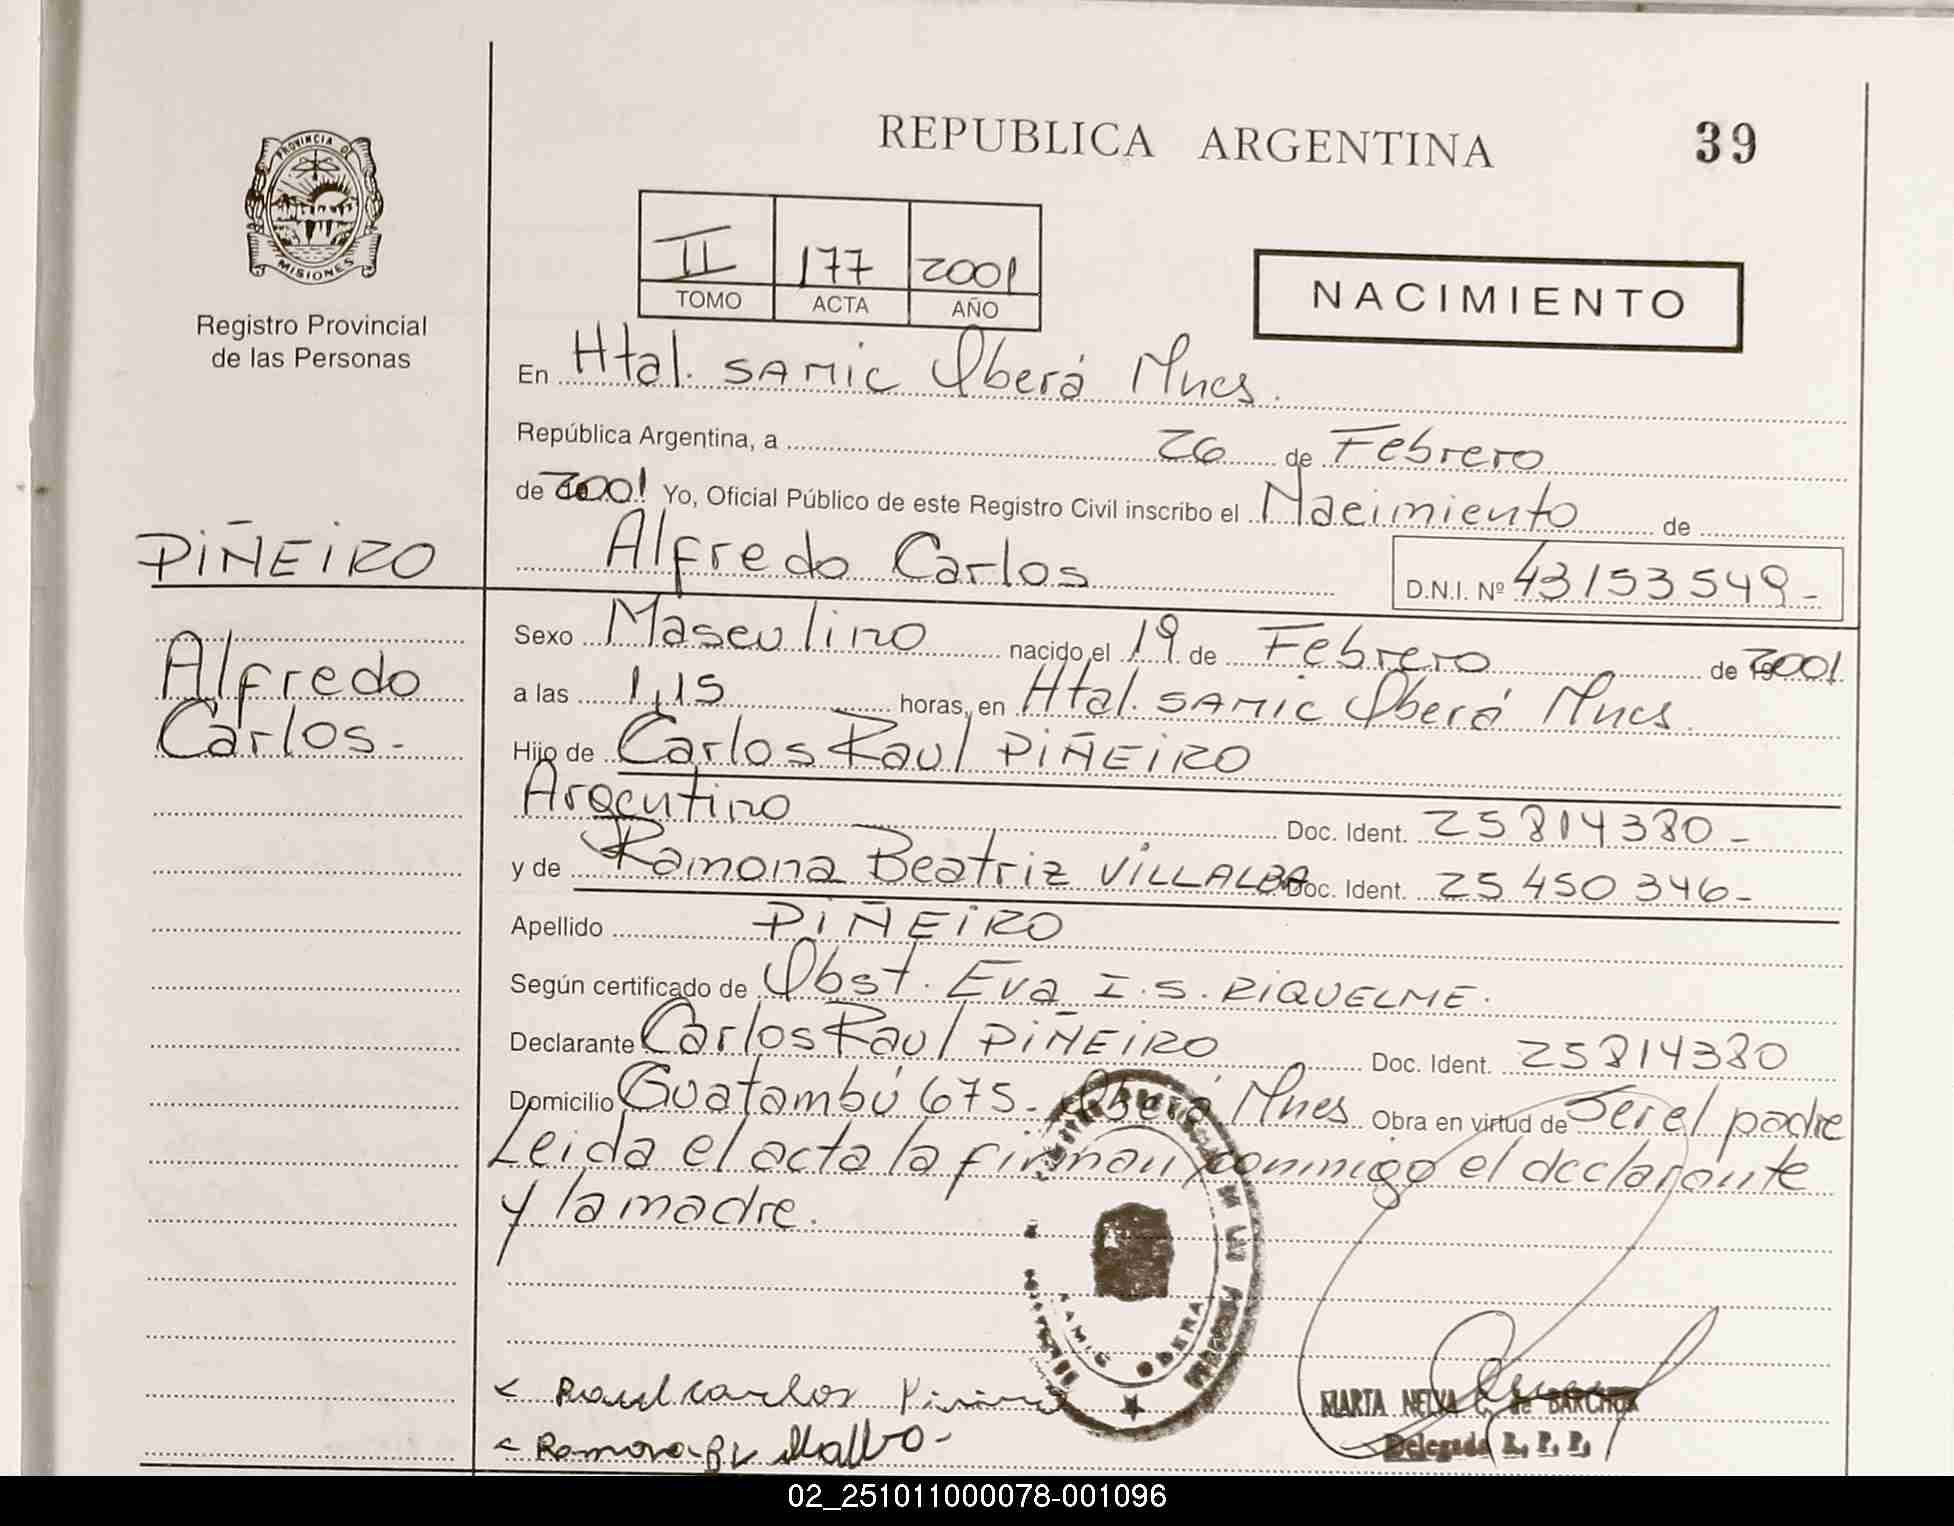 REPUBLICA ARGENTINA
39
PROVINCIA DE
MISIONES
Registro Provincial
de las Personas
II 177 2001
TOMO ACTA AÑO
NACIMIENTO
En Htal. SAMIC Oberá Mnes.
República Argentina, a 26 de Febrero
de 2001 Yo, Oficial Público de este Registro Civil inscribo el Nacimiento de
PIÑEIRO
Alfredo Carlos D.N.I. Nº 43153549-
Alfredo
Carlos.-
Sexo Masculino nacido el 19 de Febrero de 2001
a las 1,15 horas, en Htal. SAMIC Oberá Mnes.
Hijo de Carlos Raul PIÑEIRO
Argentino Doc. Ident. 25814380-
y de Ramona Beatriz VILLALBA Doc. Ident. 25450346-
Apellido PIÑEIRO
Según certificado de Obst. Eva I.S. RIQUELME.
Declarante Carlos Raul PIÑEIRO Doc. Ident. 25814380
Domicilio Guatambú 675- Oberá Mnes Obra en virtud de Ser el padre
Leida el acta la firman conmigo el declarante
y la madre.
SAMIC OBERA
Raul Carlos
Ramona
MARTA NELVA C. de BARCHUK
Delegada R. P. P.
02_251011000078-001096